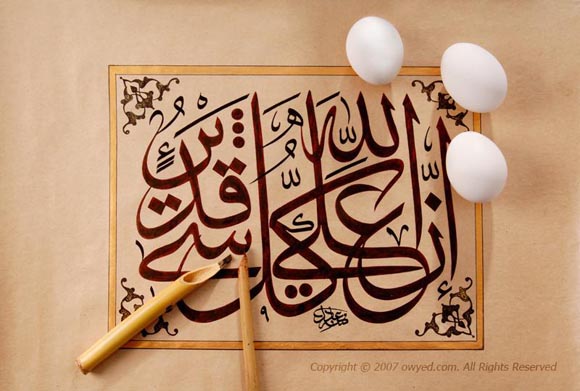 إِنَّ اللَّهَ عَلَىٰ كُلِّ شَيْءٍ قَدِيرٌ
Copyright © 2007 owyed.com. All Rights Reserved